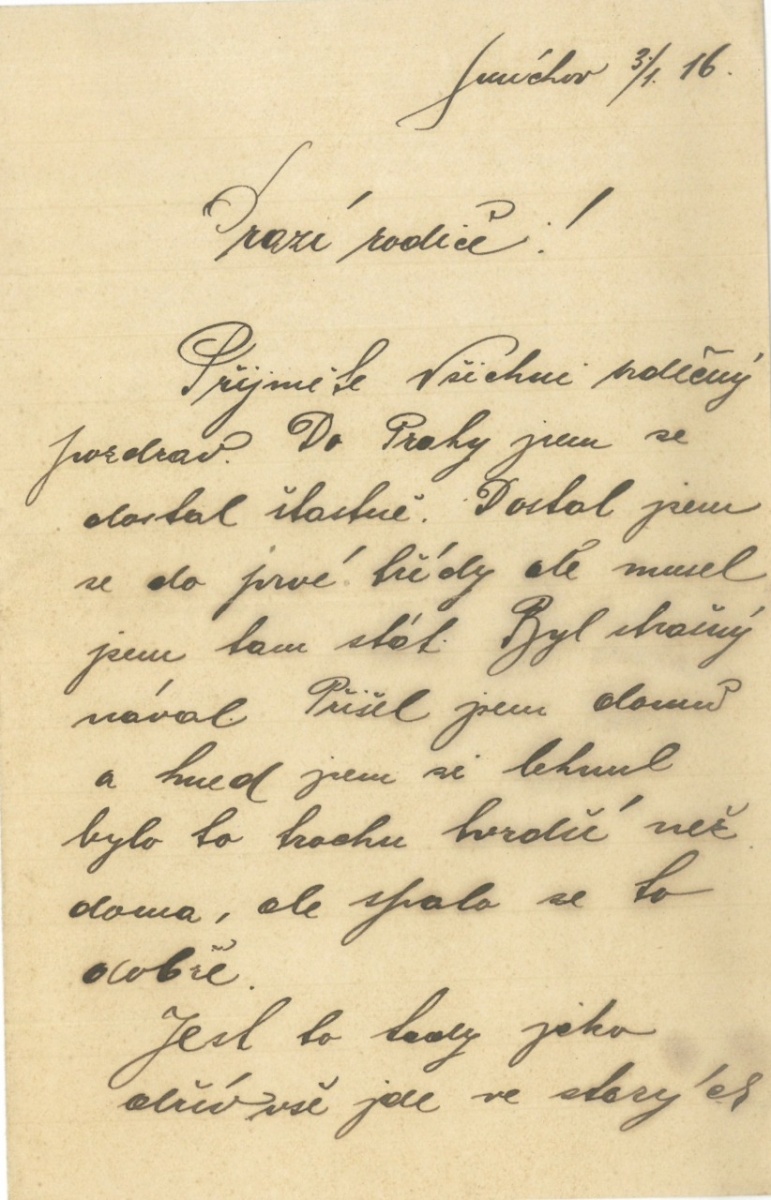 Smíchov 3./1. 16.
Drazí rodiče!
Přijměte Všichni srdečný
pozdrav. Do Prahy jsem se
dostal šťastně. Dostal jsem
se do prvé třídy ale musel
jsem tam stát. Byl strašný
nával. Přišel jsem domů
a hned jsem si lehnul
bylo to trochu tvrdší než
doma, ale spalo se to
dobře.
Jest to tady jako
dřív vše jde ve starých